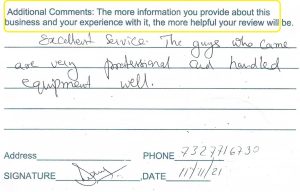 Additional Comments: The more information you provide about this
business and your experience with it, the more helpful your review will be.
Excellent Service. The guys who came
are very professional and handled
equipment well.
Address
PHONE 7327716730
SIGNATURE
DATE 11/11/21